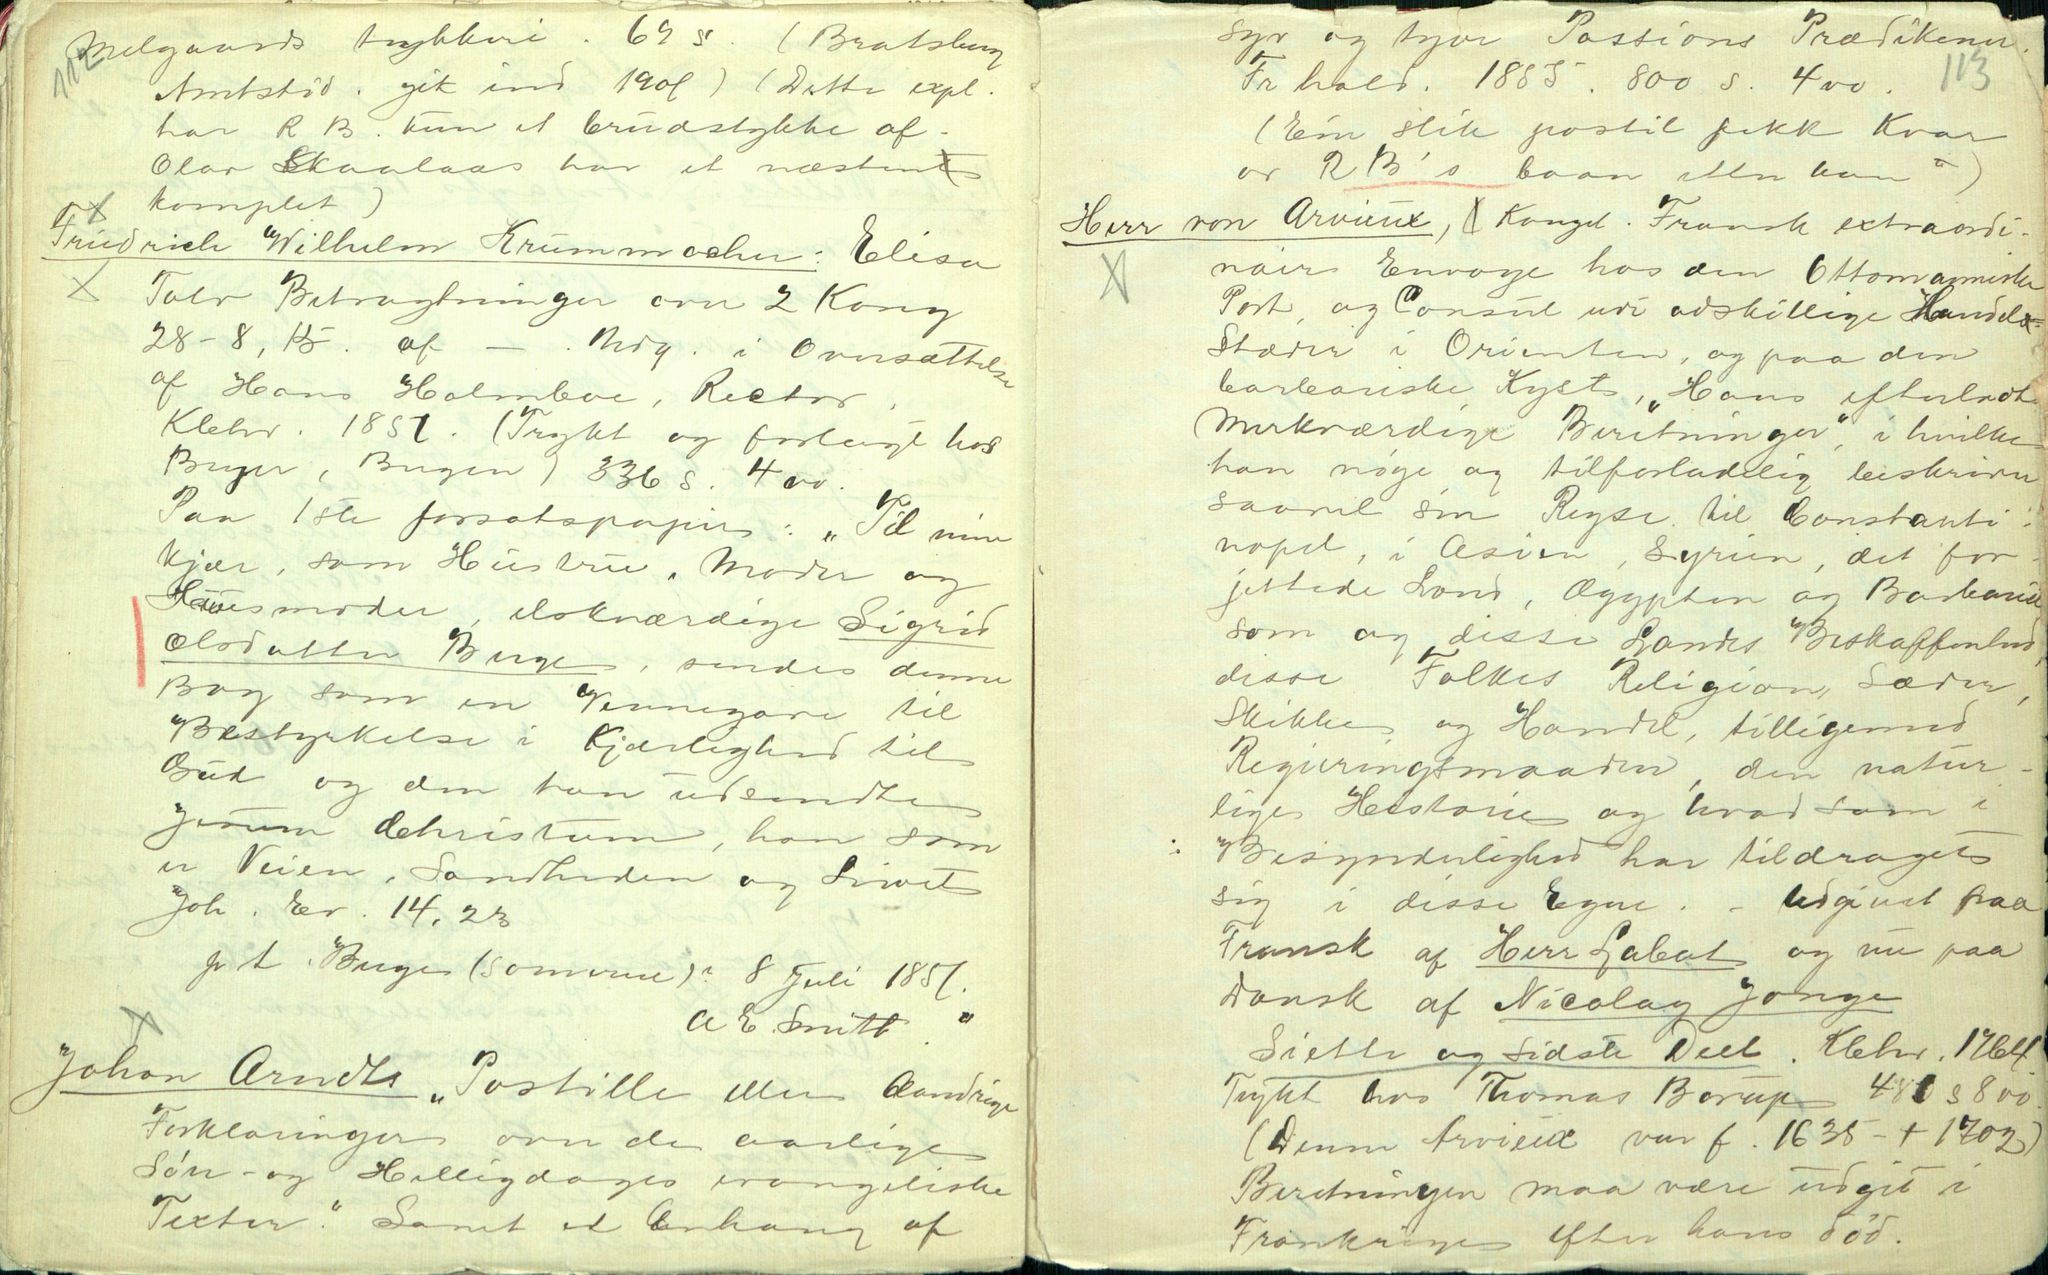 112
Melgaards trykkeri. 69 s. (Bratsberg
Amtstid. gik ind 1901) (Dette expl.
har R B. kun et brudstykke af.
Olav Skaalaas har et næsten
komplet)
Friedrich Wilhelm Krummacher: Elisa
Tolv Betragtninger over 2 Kong
28-8, 15. af — . Udg. i Oversættelse
af Hans Holmboe, Rector,
Kbhv. 1851. (Trykt og forlagt hos
Beyer, Bergen) 336 s. 4 vo.
Paa 1ste forsatspapir: "Til min
kjær, som Hustru, Moder og
Huusmoder, elskværdige Sigrid
Olsdatter Berge, sendes denne
Bog som en Vennegave til
Bestyrkelse i Kjærlighed til
Gud og den han udsendte
Jesum Christum, han som
er Veien, Sandheden og Livet
Joh. Ev. 14, 23
p t. Berge (somme): 8 Juli 1851.
A E. Smitt. "
Johan Arndts "Postille eller Aandrige
Forklaringer over de aarlige
Søn- og Helligdages evangeliske
Texter." Samt et Anhang af
113
syv og tyve Passions Prædikener.
Fr hald. 1855. 800 s. 4 vo.
(Ein slik postil fekk kvar
av R B's baan etter han")
Herr von Arvieux, Kongel. Fransk extraordi-
nair Envoye hos den Ottomanniske
Port, og Consul udi adskillige Handels-
Stæder i Orienten, og paa den
barbariske Kyst, "Hans efterladte
Merkværdige Beretninger", i hvilke
han nøge og tilforladelig beskriver
saavel sin Reyse til Constanti-
nopel, i Asien, Syrien, det for-
jettede Land, Ægypten og Barbariet
som og disse Landes Beskaffenhed,
disse Folkes Religion, Sæder,
Skikke og Handel, tilligemed
Regieringsmaaden, den natur-
lige Historie og hvad som i
Besynderlighed har tildraget
sig i disse Egne. - Udgivet paa
Fransk af Herr Labat og nu paa
Dansk af Nicolay Jonge
Siette og sidste Deel. Kbhv. 1764.
Trykt hos Thomas Borup 480 s 8 vo.
(Denne Arvieux var f. 1635 - + 1702)
Beretningen maa være udgit i
Frankrige efter hans død.